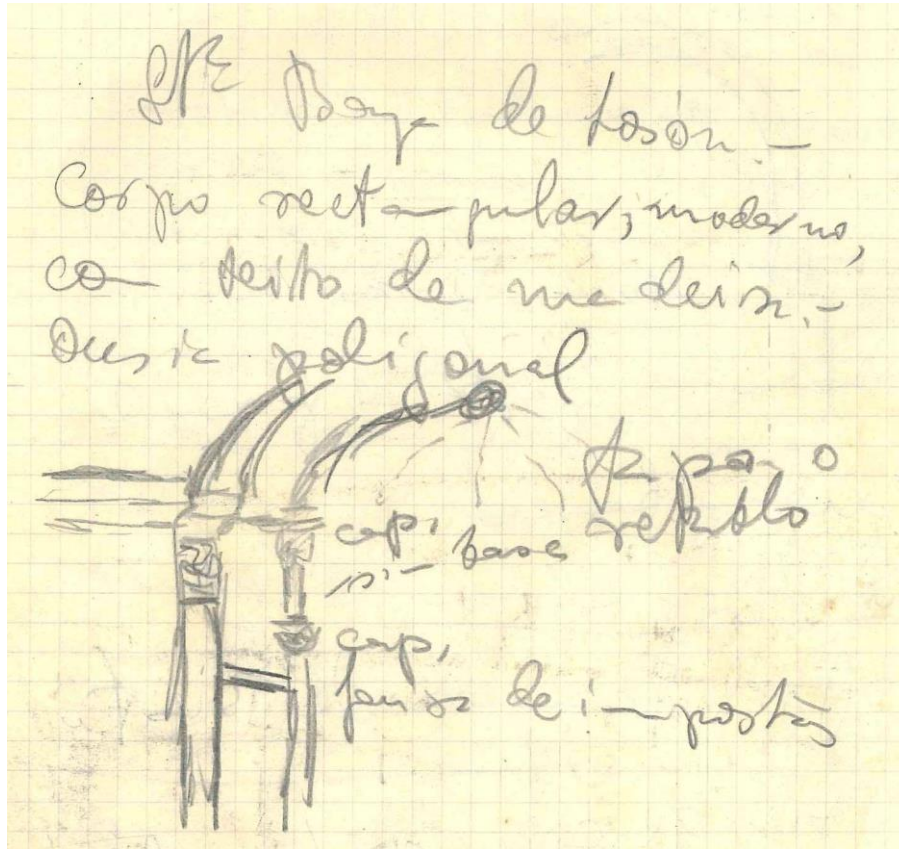 de Losón.-
Corpo rectangular, moderno,
con teito de madeira.-
Ousia poligonal
o
retablo
cap.
sin base
cap.
faixa de impostas